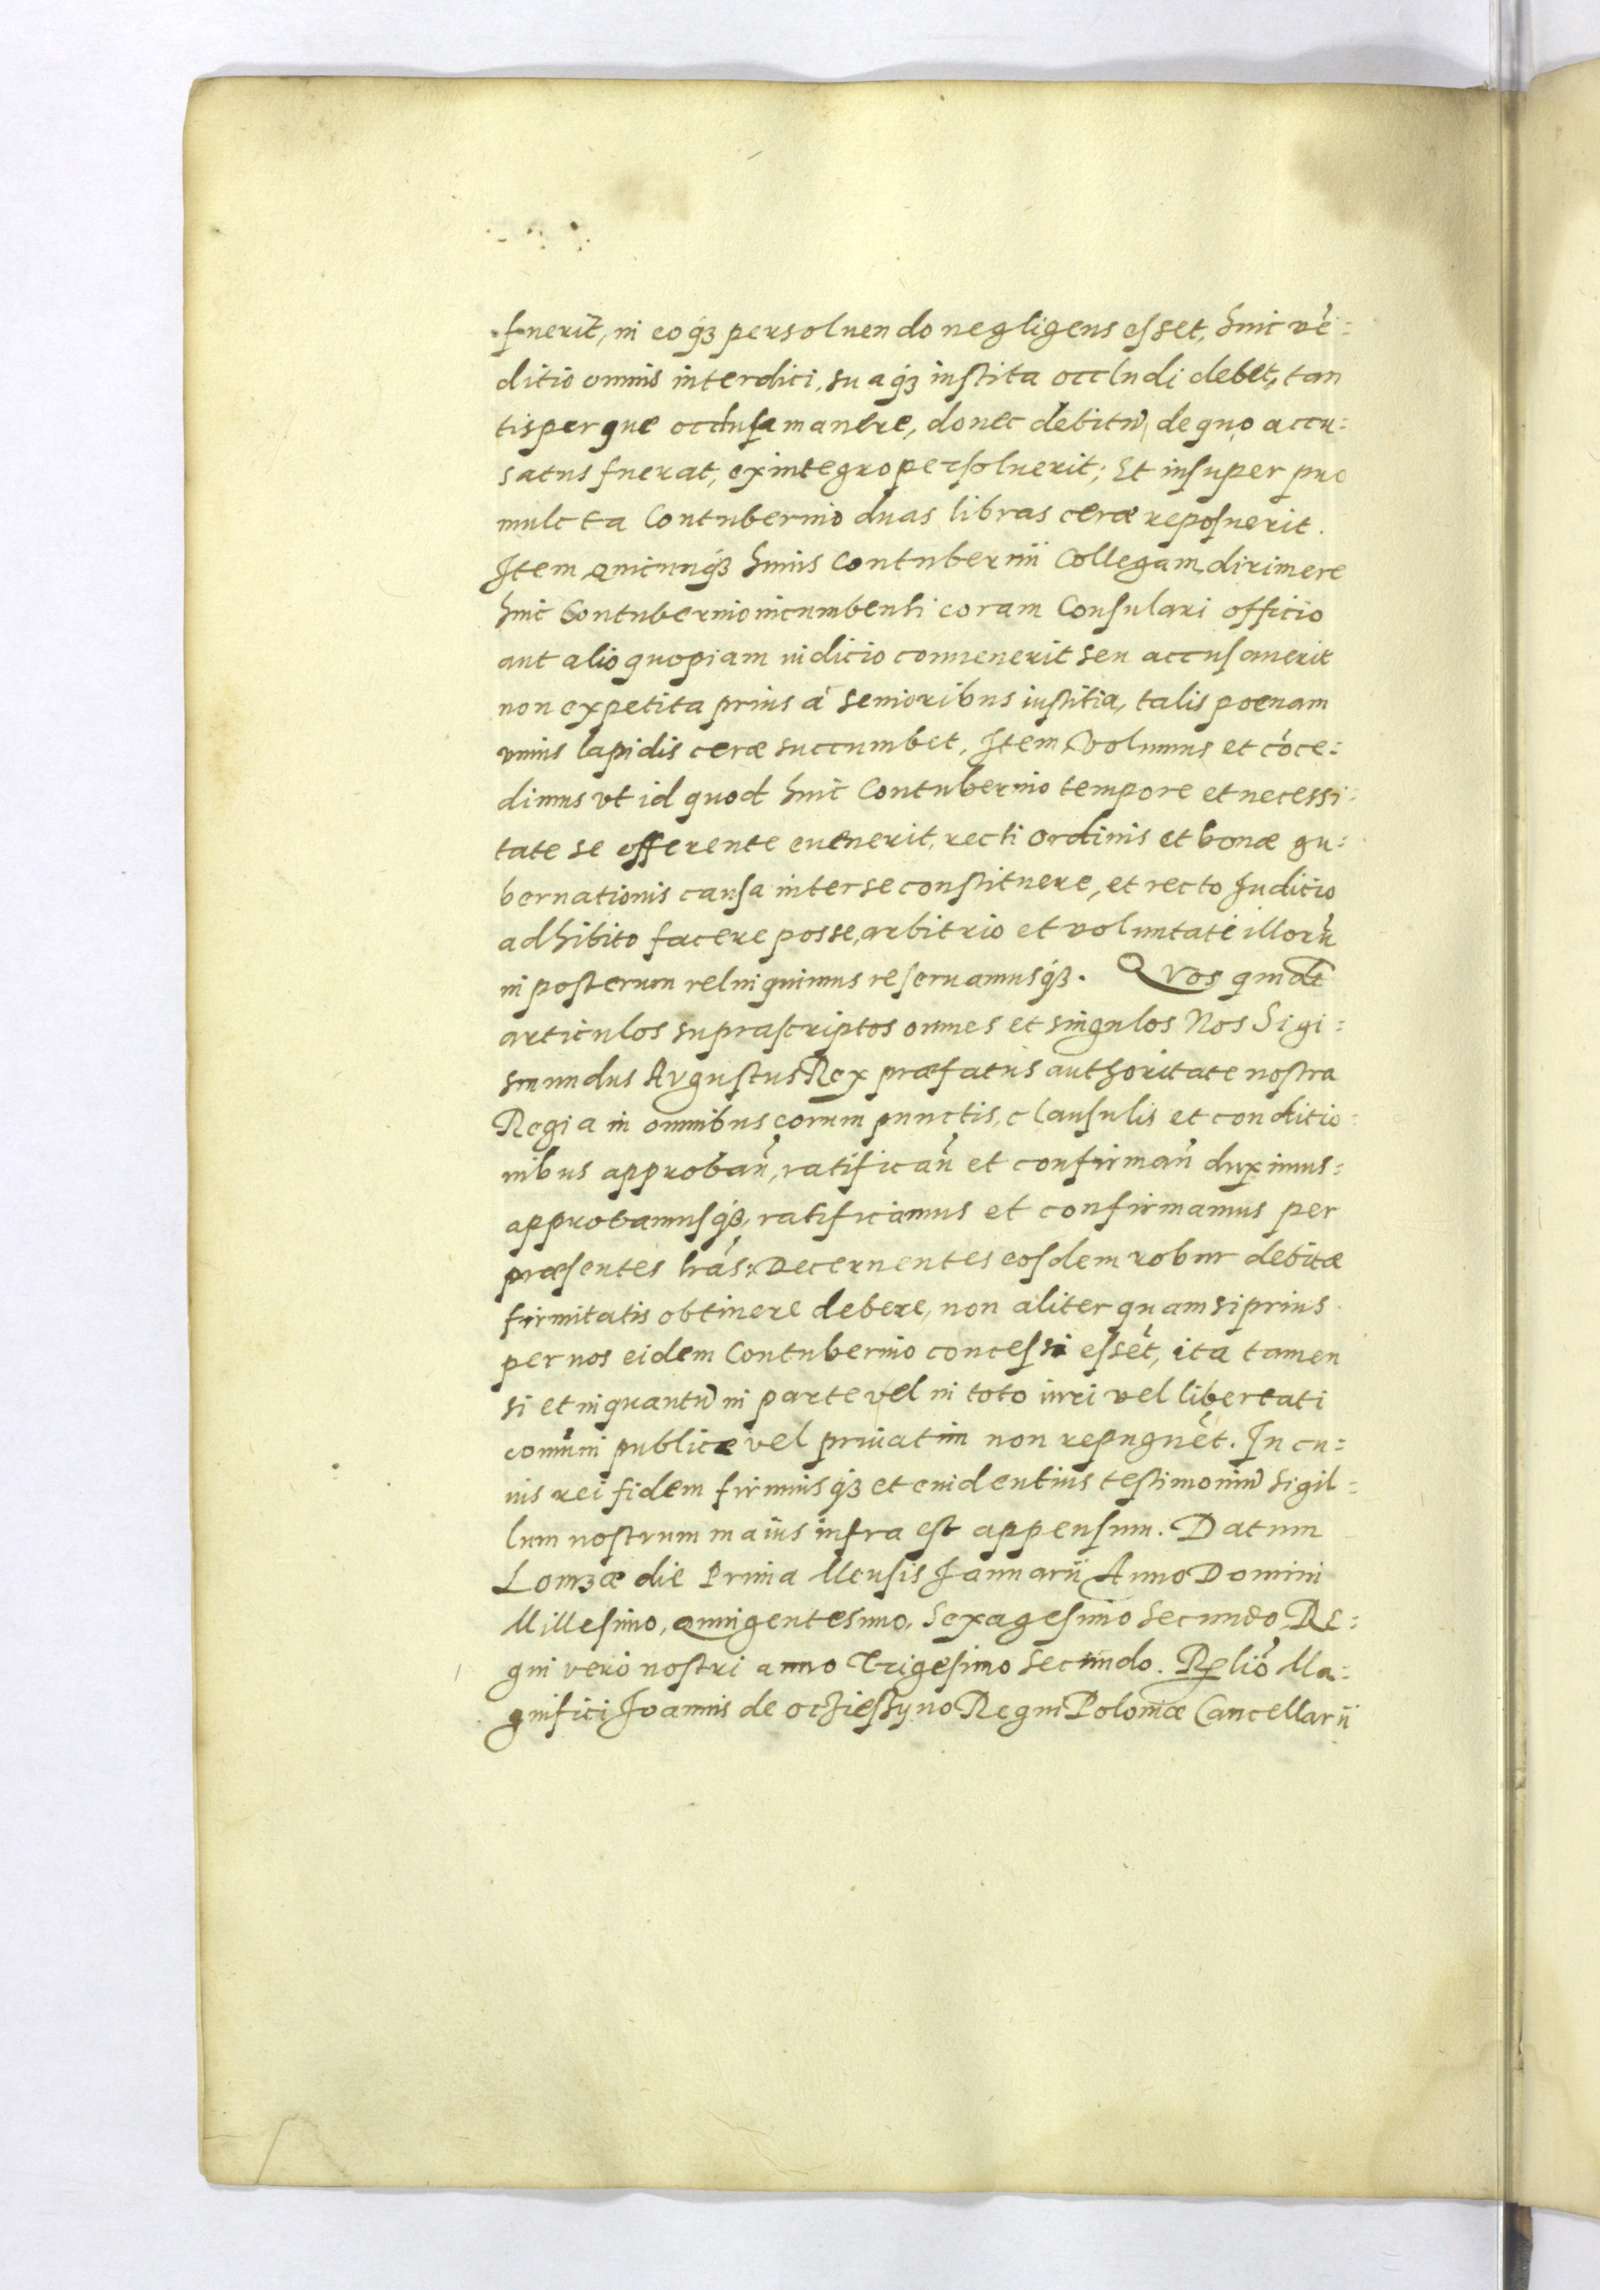 fuerit, in eoq́ꝫ persoluendo negligens esset, huic vē=
ditio omnis interdici, suaq́ꝫ instita occludi debet, tan
tisperque occlusa manere, donec debitū, de quo accu=
satus fuerat, ex integro persoluerit; Et insuper pro
mulcta Contubernio duas libras ceræ reposuerit.
Item Quicunq́ꝫ huius Contubernii Collegam dirimere
huic Contubernio incumbenti coram Consulari officio
aut alio quopiam iudicio conuenerit seu accusauerit
non expetita prius á senioribus iustitia, talis poenam
vnius lapidis ceræ succumbet, Item Volumus et cōce=
dimus vt id quod huic Contubernio tempore et necessi=
tate se offerente euenerit, recti ordinis et bonæ gu=
bernationis causa inter se constituere, et recto Iudicio
adhibito facere posse, arbitrio et voluntati illorū
in posterum relinquimus reseruamusq́ꝫ. Quos quidē
articulos suprascriptos omnes et singulos Nos Sigi=
smundus Augustus Rex præfatus authoritate nostra
Regia in omnibus eorum punctis, clausulis et conditio=
nibus approbañ, ratificañ et confirmañ duximus=
approbamusq́ꝫ, ratificamus et confirmamus per
præsentes lrās: Decernentes eosdem robur debitæ
firmitatis obtinere debere, non aliter quam si prius
per nos eidem Contubernio concessi essēt, ita tamen
si et inquantū in parte vel in toto iuri vel libertati
comūni publicæ vel priuatim non repugnēt. In cu=
ius rei fidem firmiusq́ꝫ et euidentius testimoniū sigil=
lum nostrum maius infra est appensum. Datum
Lomzæ die Prima Mensis Ianuarii Anno Domini
Millesimo, Quingentesimo, Sexagesimo Secundo, Re=
gni veró nostri anno Trigesimo Secundo. Relió Ma=
gnifici Ioannis de Ocziessyno Regni Poloniæ Cancellarii